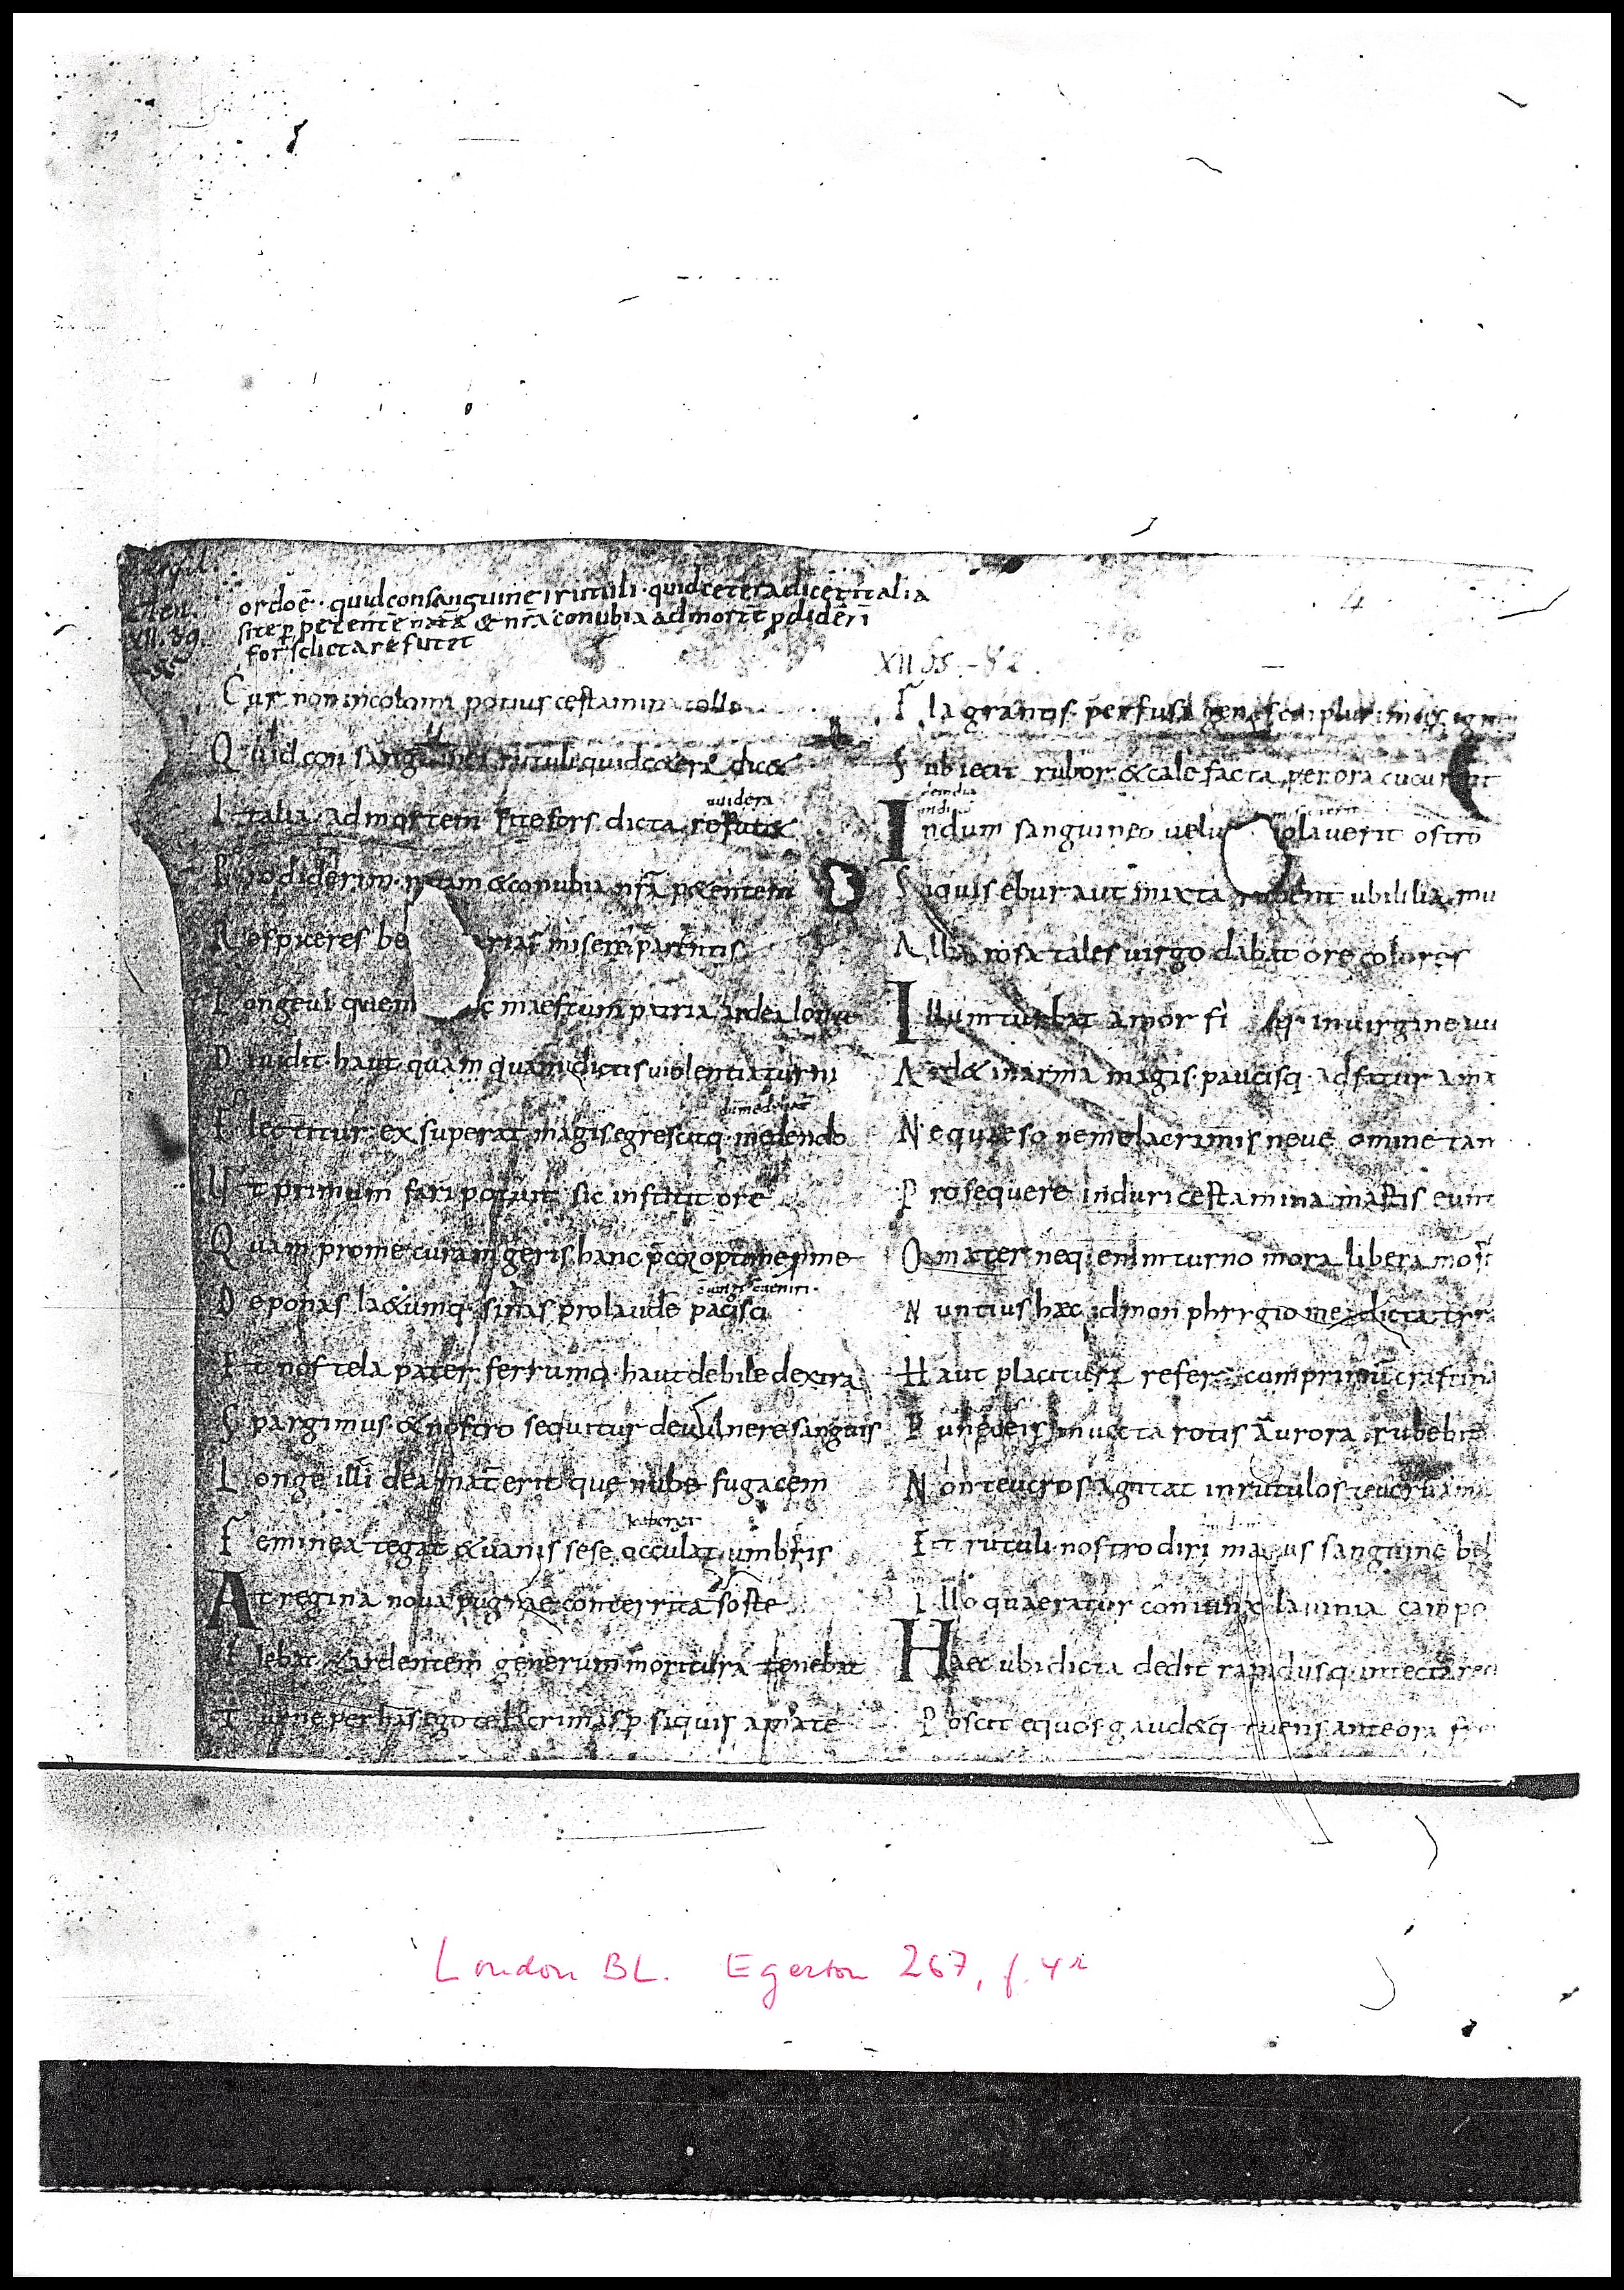 Aen.
XII. 39
ordoē · quid consanguinei rutuli · quid cetera dicet italia
si te p̄ petentē natā & nr̄a conubia ad mortē p̄diderī
fors dicta refutet
Cur non incolomi potius certamina tollo
Quid consanguinei rutuli quid c&era dic&
Italia ad mortem si te fors dicta refut&
Prodiderim natam & conubia nr̄a p&entem
Respiceres be rias miserere parentis
Longeui quem c maestum patria ardea longe
Diuidit · haut quamquam dictis uiolentia turni
Flectitur · ex superat magis egrescitq · medendo
Ut primum fari potuit sic institit ore
Quam pro me curam geris hanc p̄cor optime p me
Deponas · l&umq · sinas pro laude pacisci
Et nos tela pater · ferrumq · haut debile dextra
Spargimus · & nostro sequitur de uulnere sanguis
Longe illi dea mat̄ erit que nube fugacem
Feminea tegat & uanis sese occulat umbris
At regina noua pugnae conterrita sorte
Flebat & ardentem generum moritura tenebat
Turne per has ego te lacrimas p̄ siquis amate
4
XII 55 - 82
Flagrantis · perfusa genas cui plurimus ign
Subiecit rubor · & calefacta per ora cucurrit
Indum sanguineo uelu olauerit ostro
Siquis ebur aut mixta rubent ubi lilia mu
Alba rosa tales uirgo dabat ore colores
Illum turbat amor fi q · in uirgine uu
Ard& in arma magis · paucisq · adfatur ama
Ne quaeso ne me lacrimis neue omine tan
Prosequere in duri certamina martis eunt
O mater · neq · enim turno mora libera mort
Nuntius haec idmon phrygio mea dicta tyr
Haut placitura refer · cum primū crastina
Puniceis inuecta rotis aurora rubebit
Non teucros agitat in rutulos teucrū arma
Et rutuli nostro diri manus sanguine bel
Illo quaeratur coniunx lauinia campo
Haec ubi dicta dedit rapidusq · in tecta rec
Poscit equos gaud&q · tuens ante ora fre
London BL. Egerton 267, f. 4r